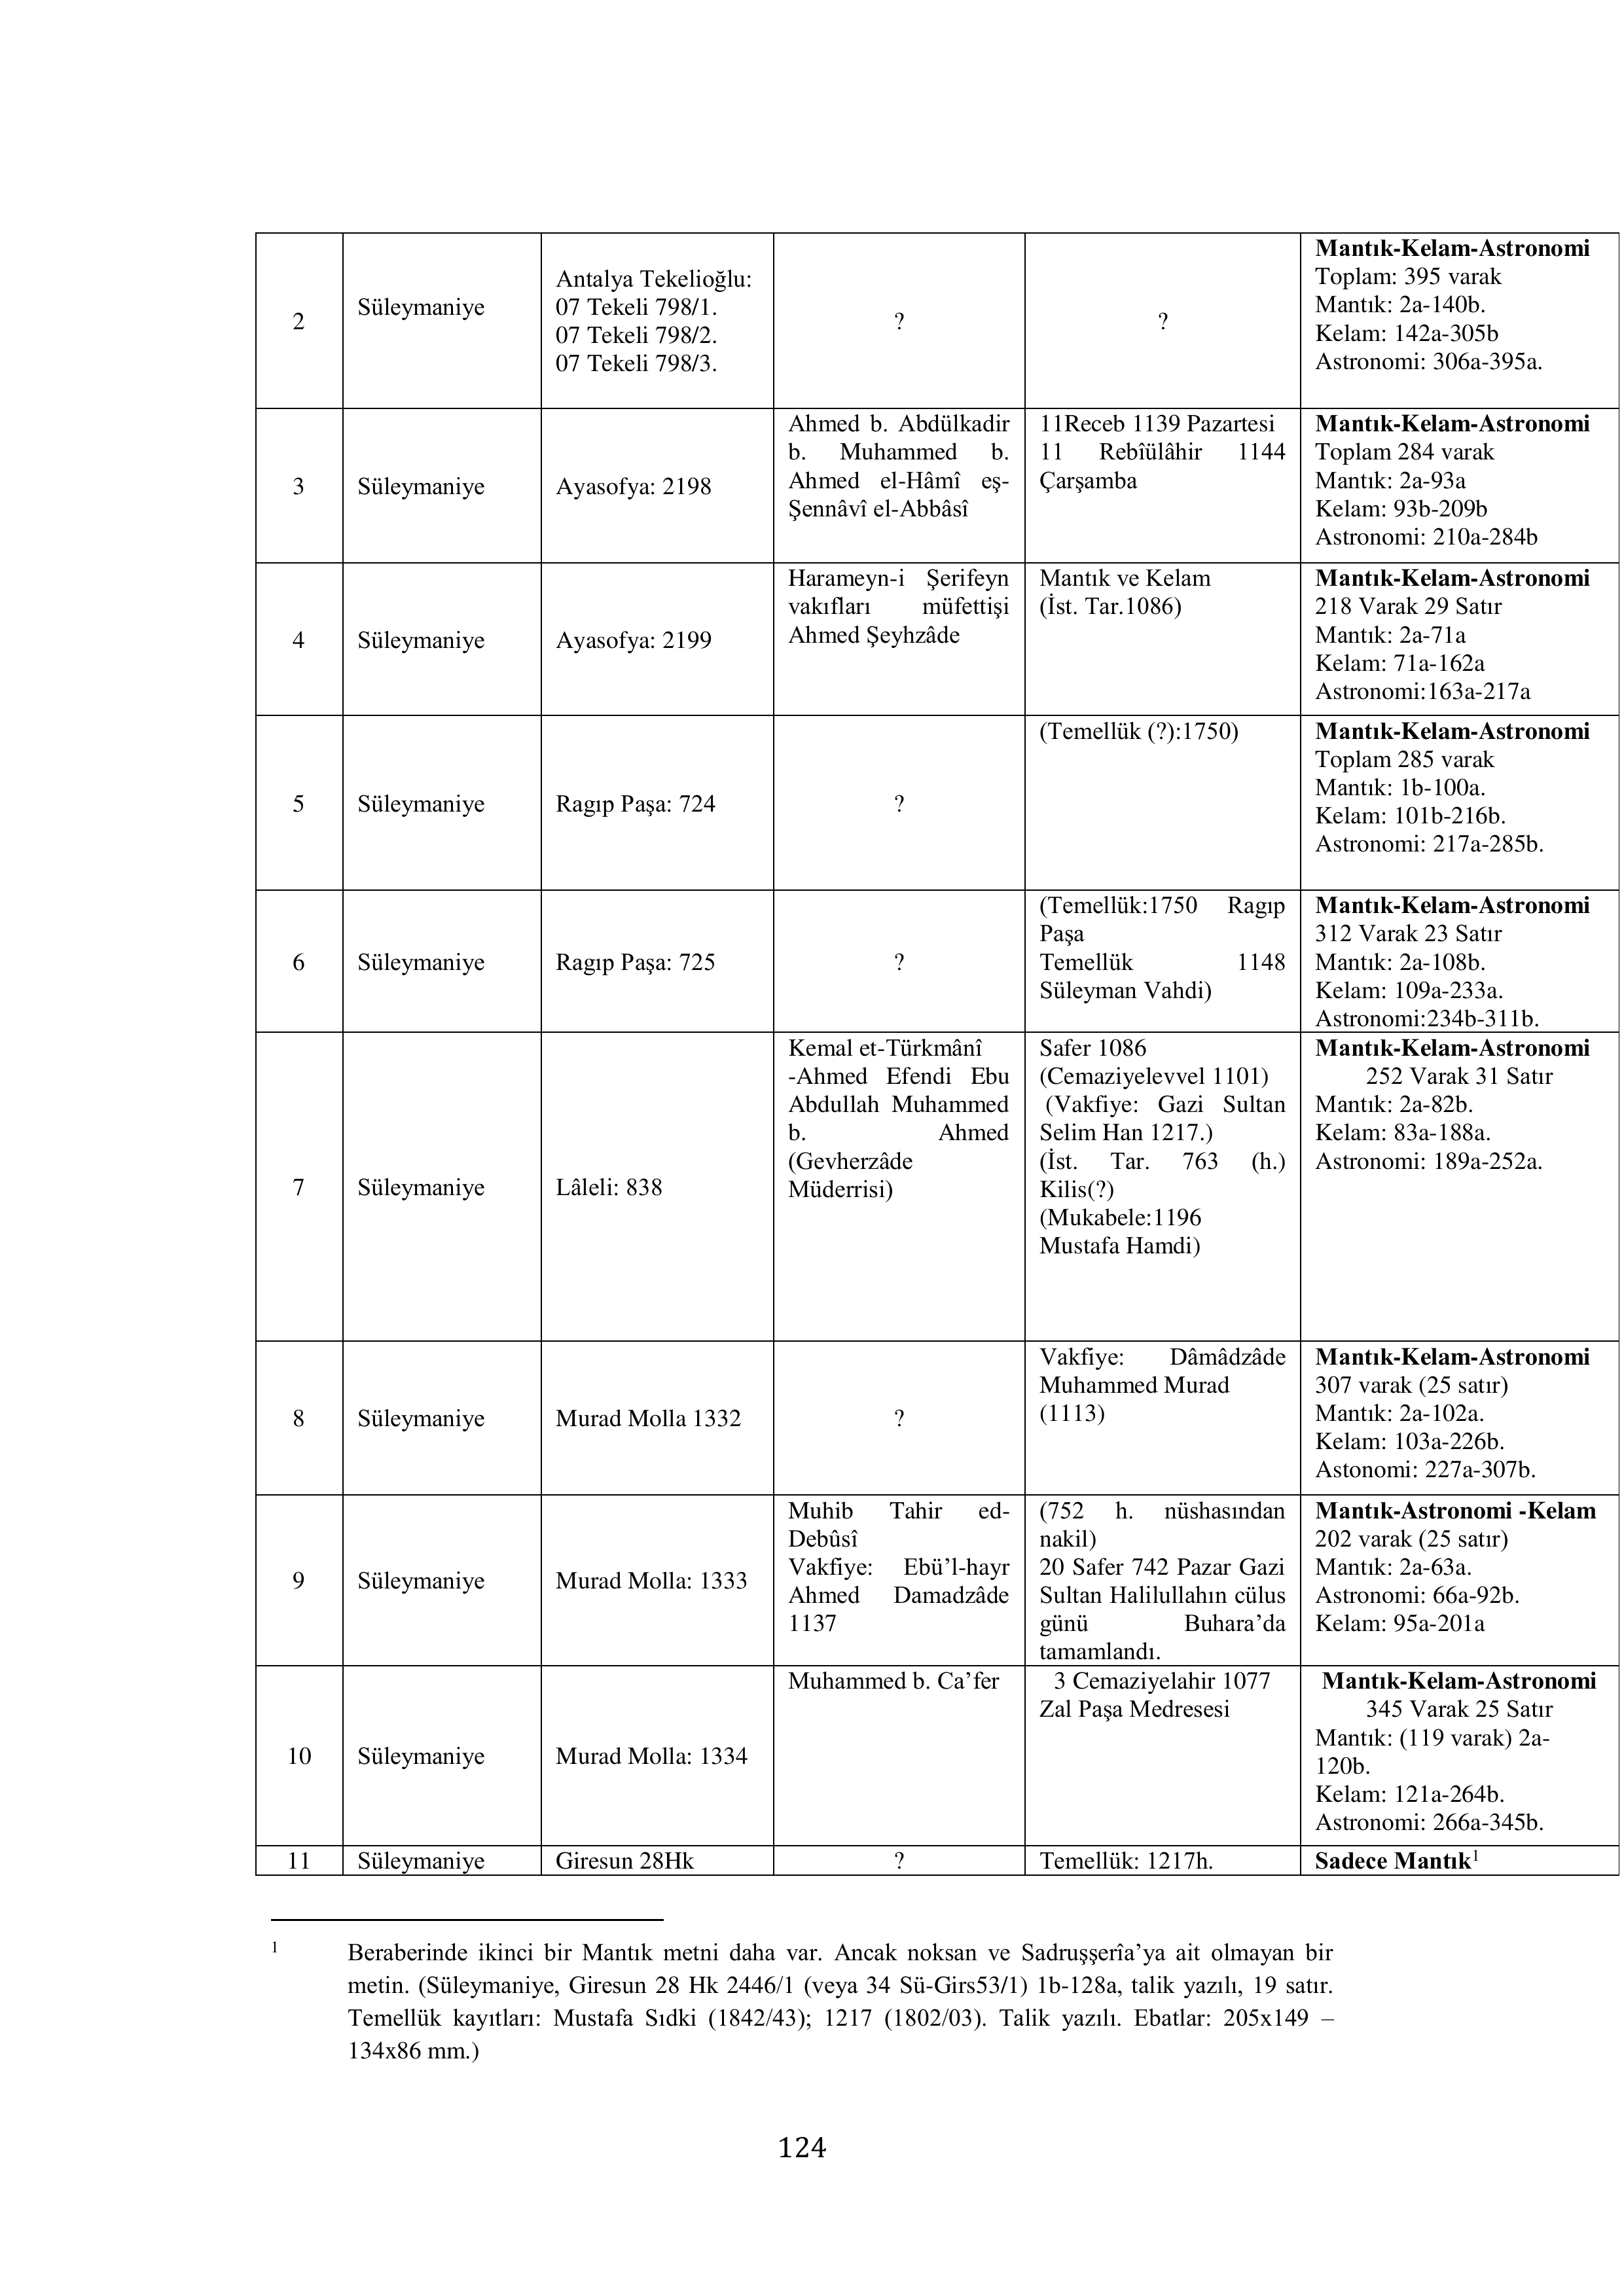 2
Süleymaniye
Antalya Tekelioğlu:
07 Tekeli 798/1.
07 Tekeli 798/2.
07 Tekeli 798/3.
?
?
Mantık-Kelam-Astronomi
Toplam: 395 varak
Mantık: 2a-140b.
Kelam: 142a-305b
Astronomi: 306a-395a.
3
Süleymaniye
Ayasofya: 2198
Ahmed b. Abdülkadir
b. Muhammed b.
Ahmed el-Hâmî eş-
Şennâvî el-Abbâsî
11Receb 1139 Pazartesi
11 Rebîülâhir 1144
Çarşamba
Mantık-Kelam-Astronomi
Toplam 284 varak
Mantık: 2a-93a
Kelam: 93b-209b
Astronomi: 210a-284b
4
Süleymaniye
Ayasofya: 2199
Harameyn-i Şerifeyn
vakıfları müfettişi
Ahmed Şeyhzâde
Mantık ve Kelam
(İst. Tar.1086)
Mantık-Kelam-Astronomi
218 Varak 29 Satır
Mantık: 2a-71a
Kelam: 71a-162a
Astronomi:163a-217a
5
Süleymaniye
Ragıp Paşa: 724
?
(Temellük (?):1750)
Mantık-Kelam-Astronomi
Toplam 285 varak
Mantık: 1b-100a.
Kelam: 101b-216b.
Astronomi: 217a-285b.
6
Süleymaniye
Ragıp Paşa: 725
?
(Temellük:1750 Ragıp
Paşa
Temellük 1148
Süleyman Vahdi)
Mantık-Kelam-Astronomi
312 Varak 23 Satır
Mantık: 2a-108b.
Kelam: 109a-233a.
Astronomi:234b-311b.
7
Süleymaniye
Lâleli: 838
Kemal et-Türkmânî
-Ahmed Efendi Ebu
Abdullah Muhammed
b. Ahmed
(Gevherzâde
Müderrisi)
Safer 1086
(Cemaziyelevvel 1101)
(Vakfiye: Gazi Sultan
Selim Han 1217.)
(İst. Tar. 763 (h.)
Kilis(?)
(Mukabele:1196
Mustafa Hamdi)
Mantık-Kelam-Astronomi
252 Varak 31 Satır
Mantık: 2a-82b.
Kelam: 83a-188a.
Astronomi: 189a-252a.
8
Süleymaniye
Murad Molla 1332
?
Vakfiye: Dâmâdzâde
Muhammed Murad
(1113)
Mantık-Kelam-Astronomi
307 varak (25 satır)
Mantık: 2a-102a.
Kelam: 103a-226b.
Astonomi: 227a-307b.
9
Süleymaniye
Murad Molla: 1333
Muhib Tahir ed-
Debûsî
Vakfiye: Ebü’l-hayr
Ahmed Damadzâde
1137
(752 h. nüshasından
nakil)
20 Safer 742 Pazar Gazi
Sultan Halilullahın cülus
günü Buhara’da
tamamlandı.
Mantık-Astronomi -Kelam
202 varak (25 satır)
Mantık: 2a-63a.
Astronomi: 66a-92b.
Kelam: 95a-201a
10
Süleymaniye
Murad Molla: 1334
Muhammed b. Ca’fer
3 Cemaziyelahir 1077
Zal Paşa Medresesi
Mantık-Kelam-Astronomi
345 Varak 25 Satır
Mantık: (119 varak) 2a-
120b.
Kelam: 121a-264b.
Astronomi: 266a-345b.
11
Süleymaniye
Giresun 28Hk
?
Temellük: 1217h.
Sadece Mantık1
1 Beraberinde ikinci bir Mantık metni daha var. Ancak noksan ve Sadruşşerîa’ya ait olmayan bir
metin. (Süleymaniye, Giresun 28 Hk 2446/1 (veya 34 Sü-Girs53/1) 1b-128a, talik yazılı, 19 satır.
Temellük kayıtları: Mustafa Sıdki (1842/43); 1217 (1802/03). Talik yazılı. Ebatlar: 205x149 –
134x86 mm.)
124